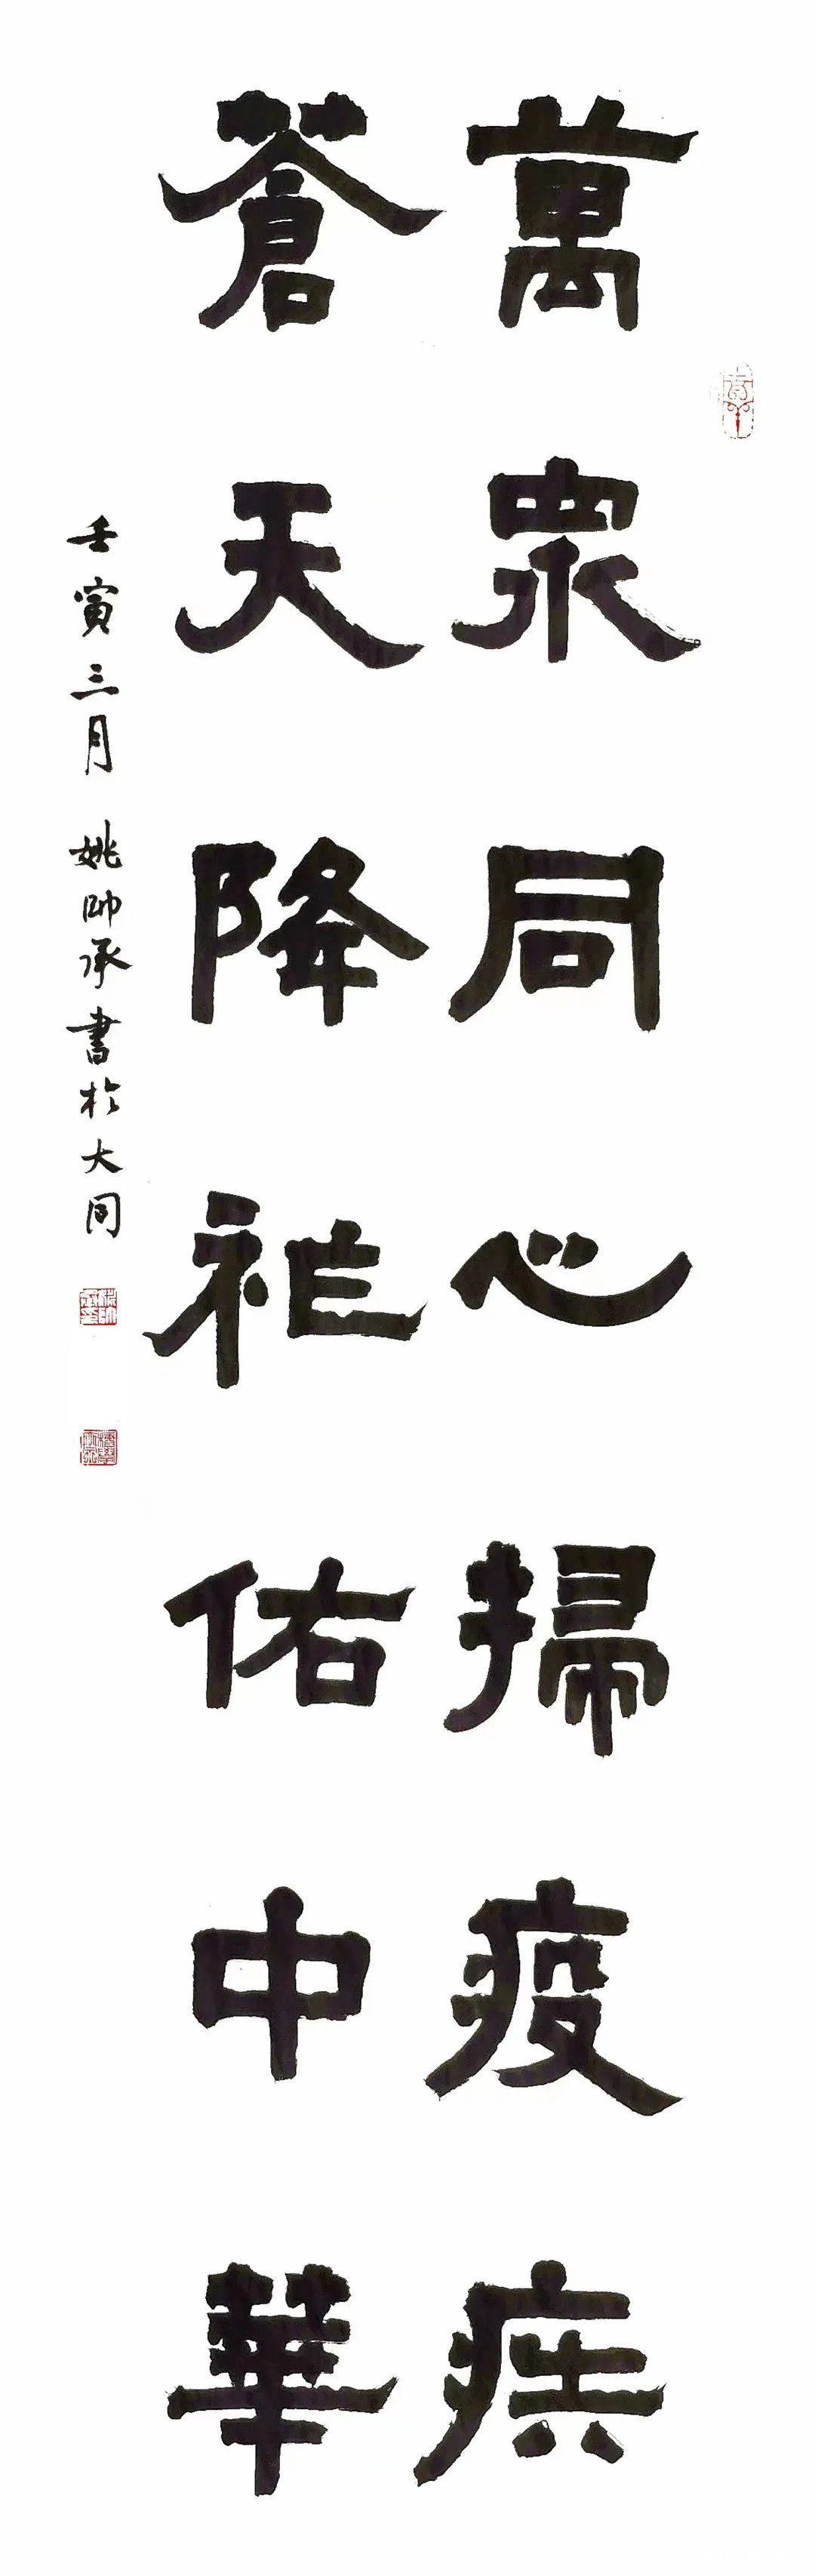 萬衆同心掃疫疾
蒼天降祉佑中華
壬寅三月 姚帥承書於大同